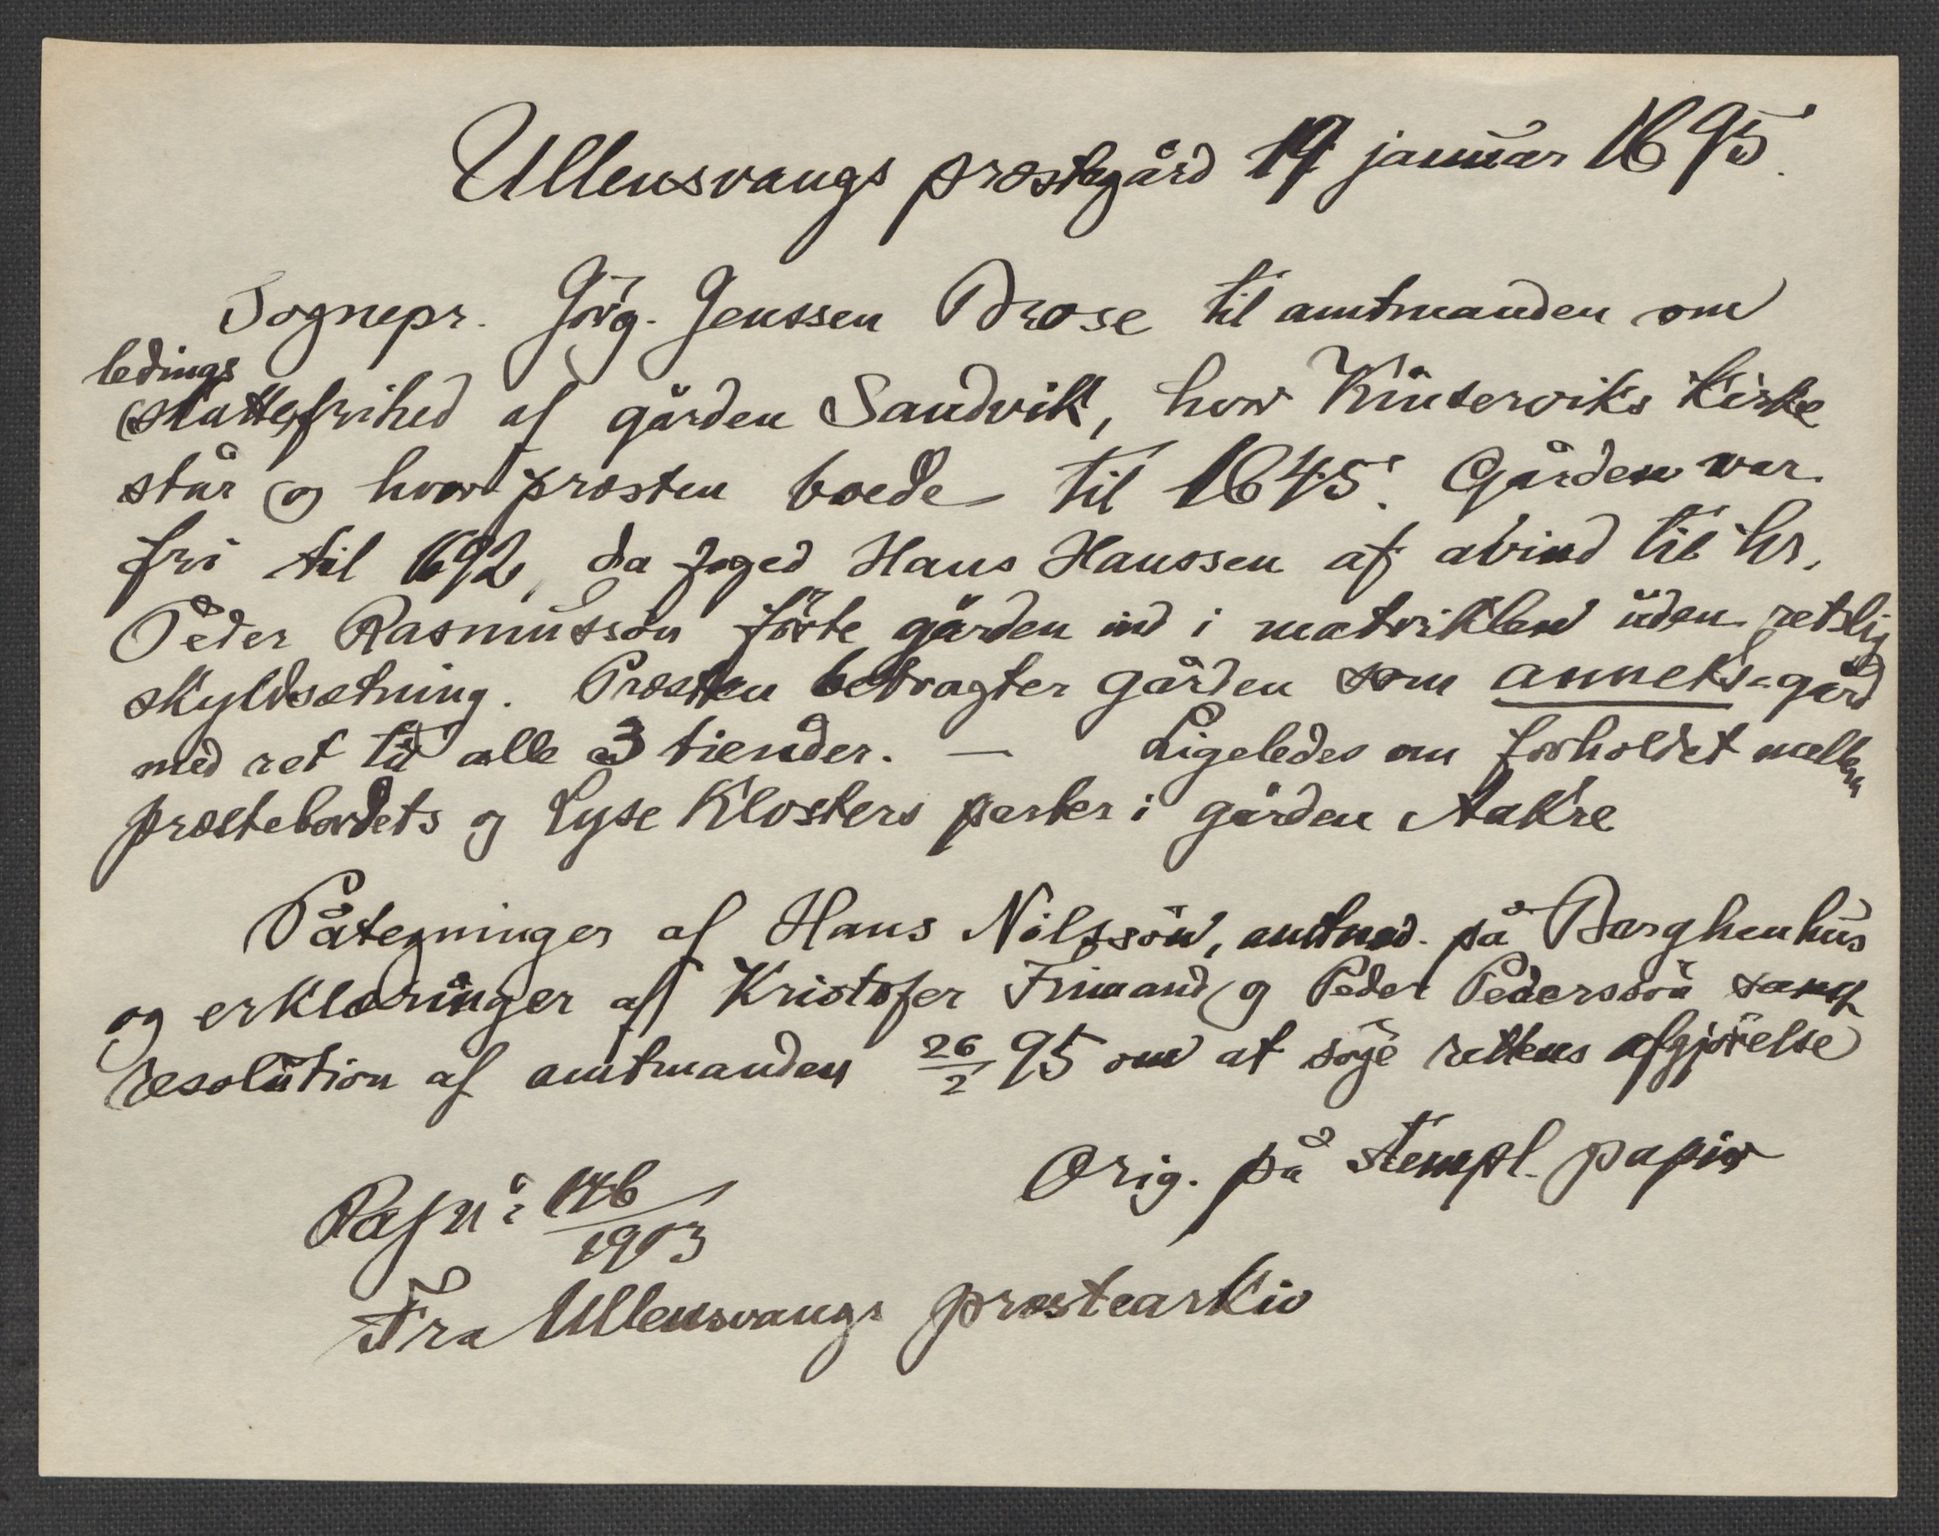 Ullensvangs præstegård 19 januar 1695.
Sognepr. Jörg. Jenssen Brose til amtmanden om
ledings
(skatte)frihed af gården Sandvik, hvor Kinserviks Kirke
står og hvor præsten boede til 1645. Gården var
fri til 1692, da foged Hans Hanssen af avind til hr.
Peder Rasmussön förte gården ind i matriklen uden retslig
skyldsætning. Præsten betragter gården som anneks-gård
med ret til alle 3 tiender. — Ligeledes om forholdet mellem
præstebordets og Lyse Klosters parter i gården Aakre
Påtegninger af Hans Nilssön, amtmd. på Berghenhus
og erklæringer af Kristofer Frimand og Peder Pederssön samt
resolution af amtmanden 26/2 95 om at söge rettens afgjörelse
Orig. på stempl. papir
Paf n: 146/1903
Fra Ullensvangs prestearkiv